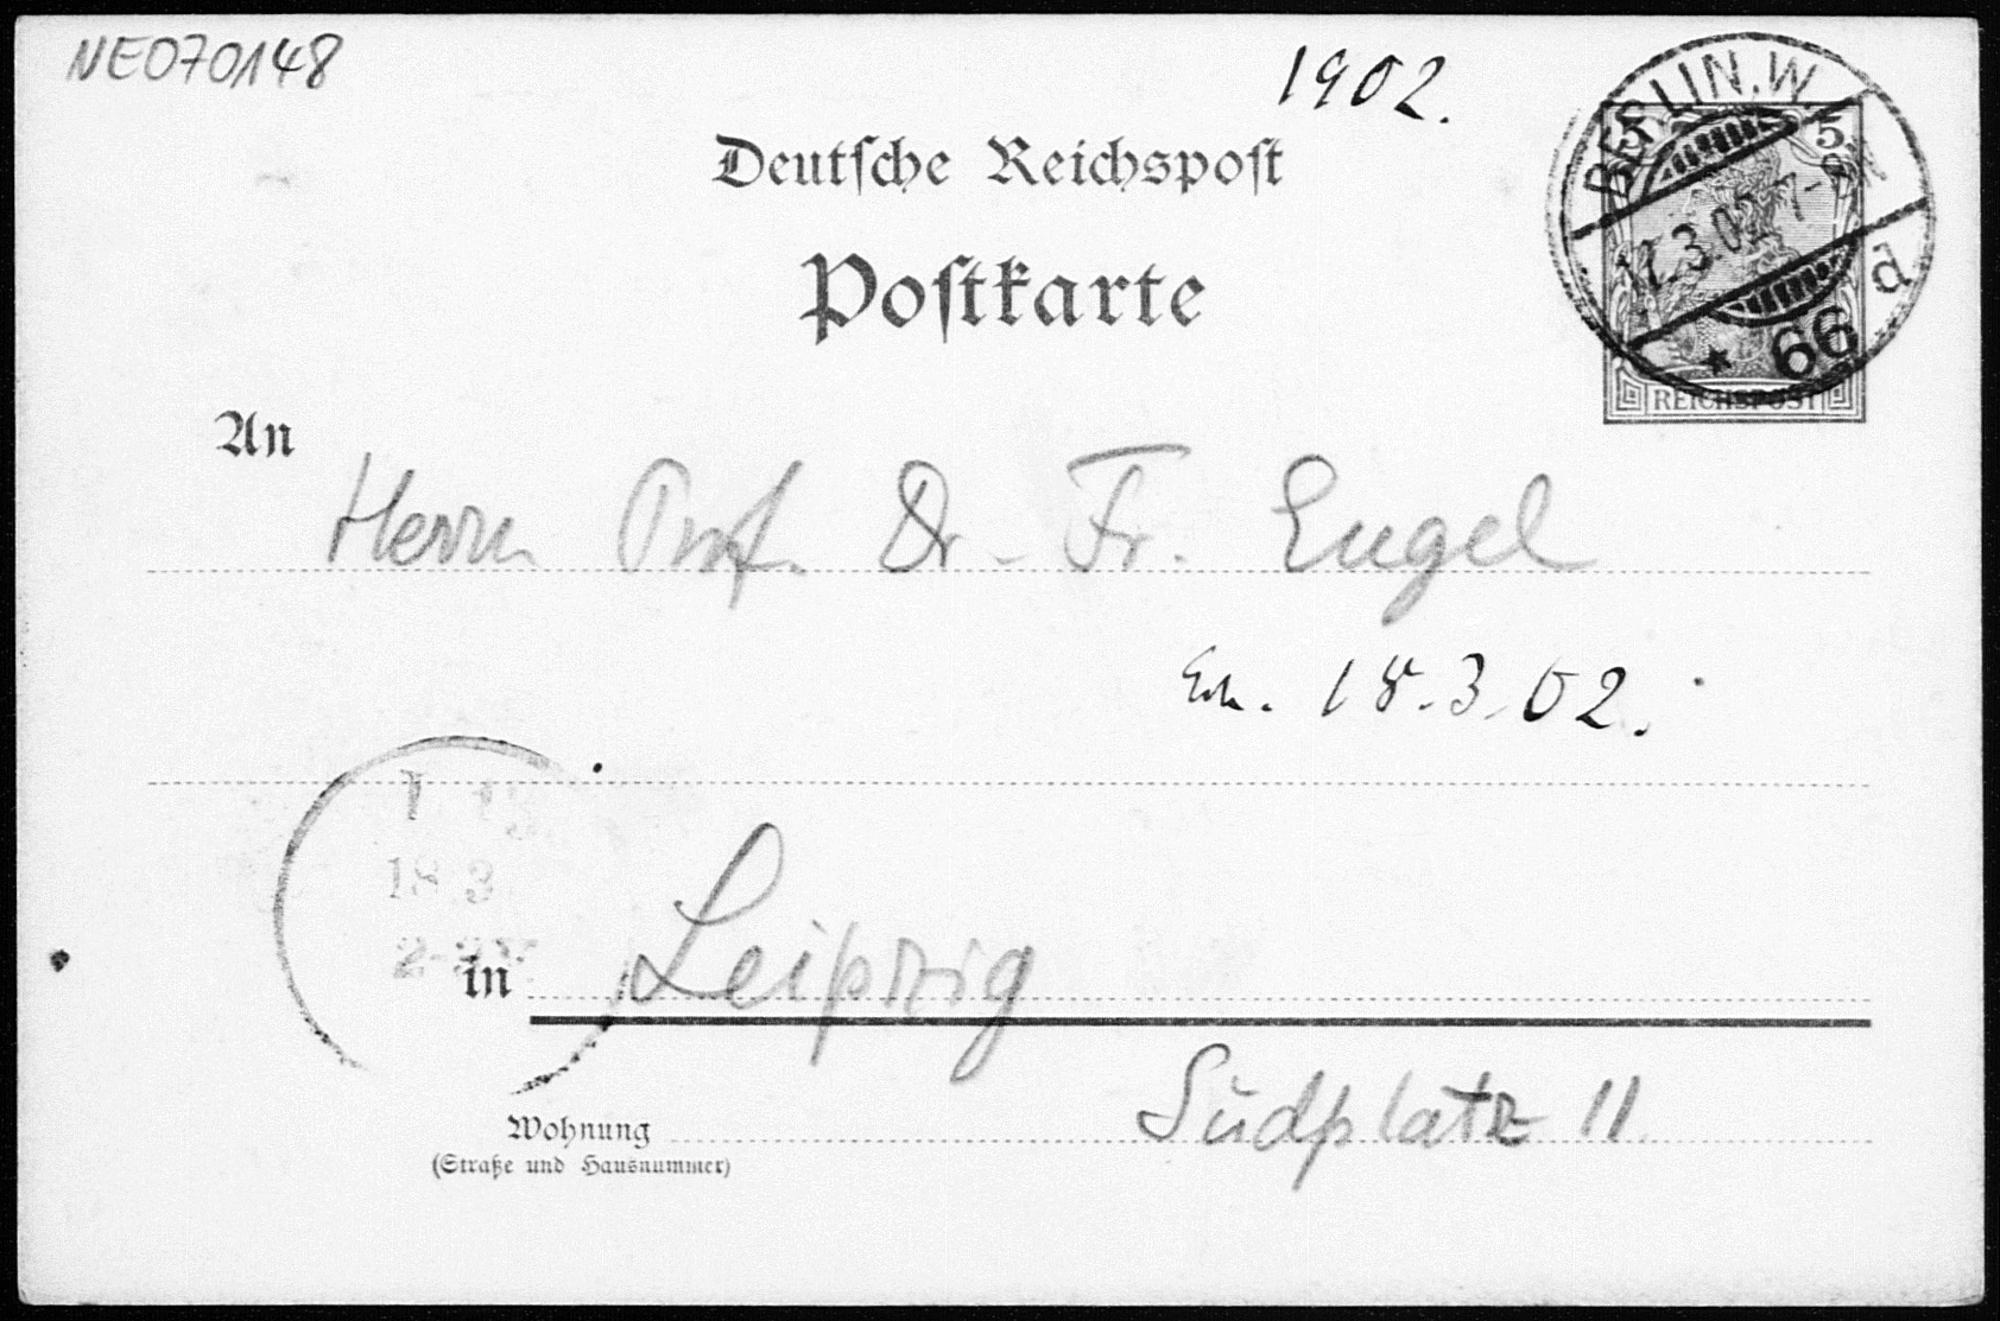 NE070148
1902.
Deutſche Reichspoſt
Poſtkarte
BERLIN. W.
5 5
17.3.02 7-8N
d
* 66
REICHSPOST
An
Herrn Prof. Dr. Fr. Engel
18.3.02.
18 3
in Leipzig
Südplatz 11
Wohnung
(Straße und Hausnummer)